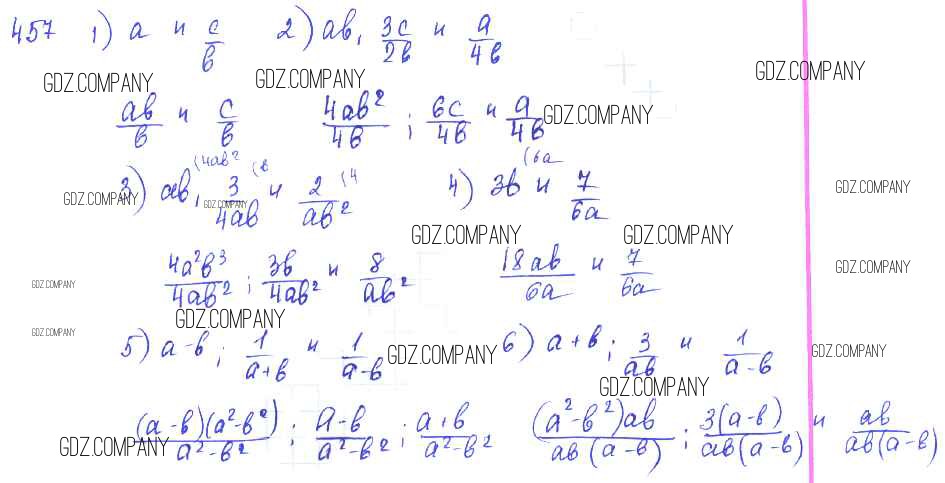 457 1) a и c/b 2) ab, 3c/2b и a/4b
GDZ.COMPANY GDZ.COMPANY GDZ.COMPANY
ab/b и c/b 4ab²/4b ; 6c/4b и a/4b GDZ.COMPANY
3) ab, (4ab² 3/4ab (b и 2/ab² (4 4) 3b (6a и 7/6a
GDZ.COMPANY GDZ.COMPANY GDZ.COMPANY
GDZ.COMPANY GDZ.COMPANY
4a²b³/4ab² ; 3b/4ab² и 8/ab² 18ab/6a и 7/6a
GDZ.COMPANY GDZ.COMPANY
GDZ.COMPANY
GDZ.COMPANY
5) a-b ; 1/a+b и 1/a-b 6) a+b ; 3/ab и 1/a-b
GDZ.COMPANY GDZ.COMPANY
GDZ.COMPANY
(a-b)(a²-b²)/a²-b² ; a-b/a²-b² ; a+b/a²-b² (a²-b²)ab/ab(a-b) ; 3(a-b)/ab(a-b) и ab/ab(a-b)
GDZ.COMPANY